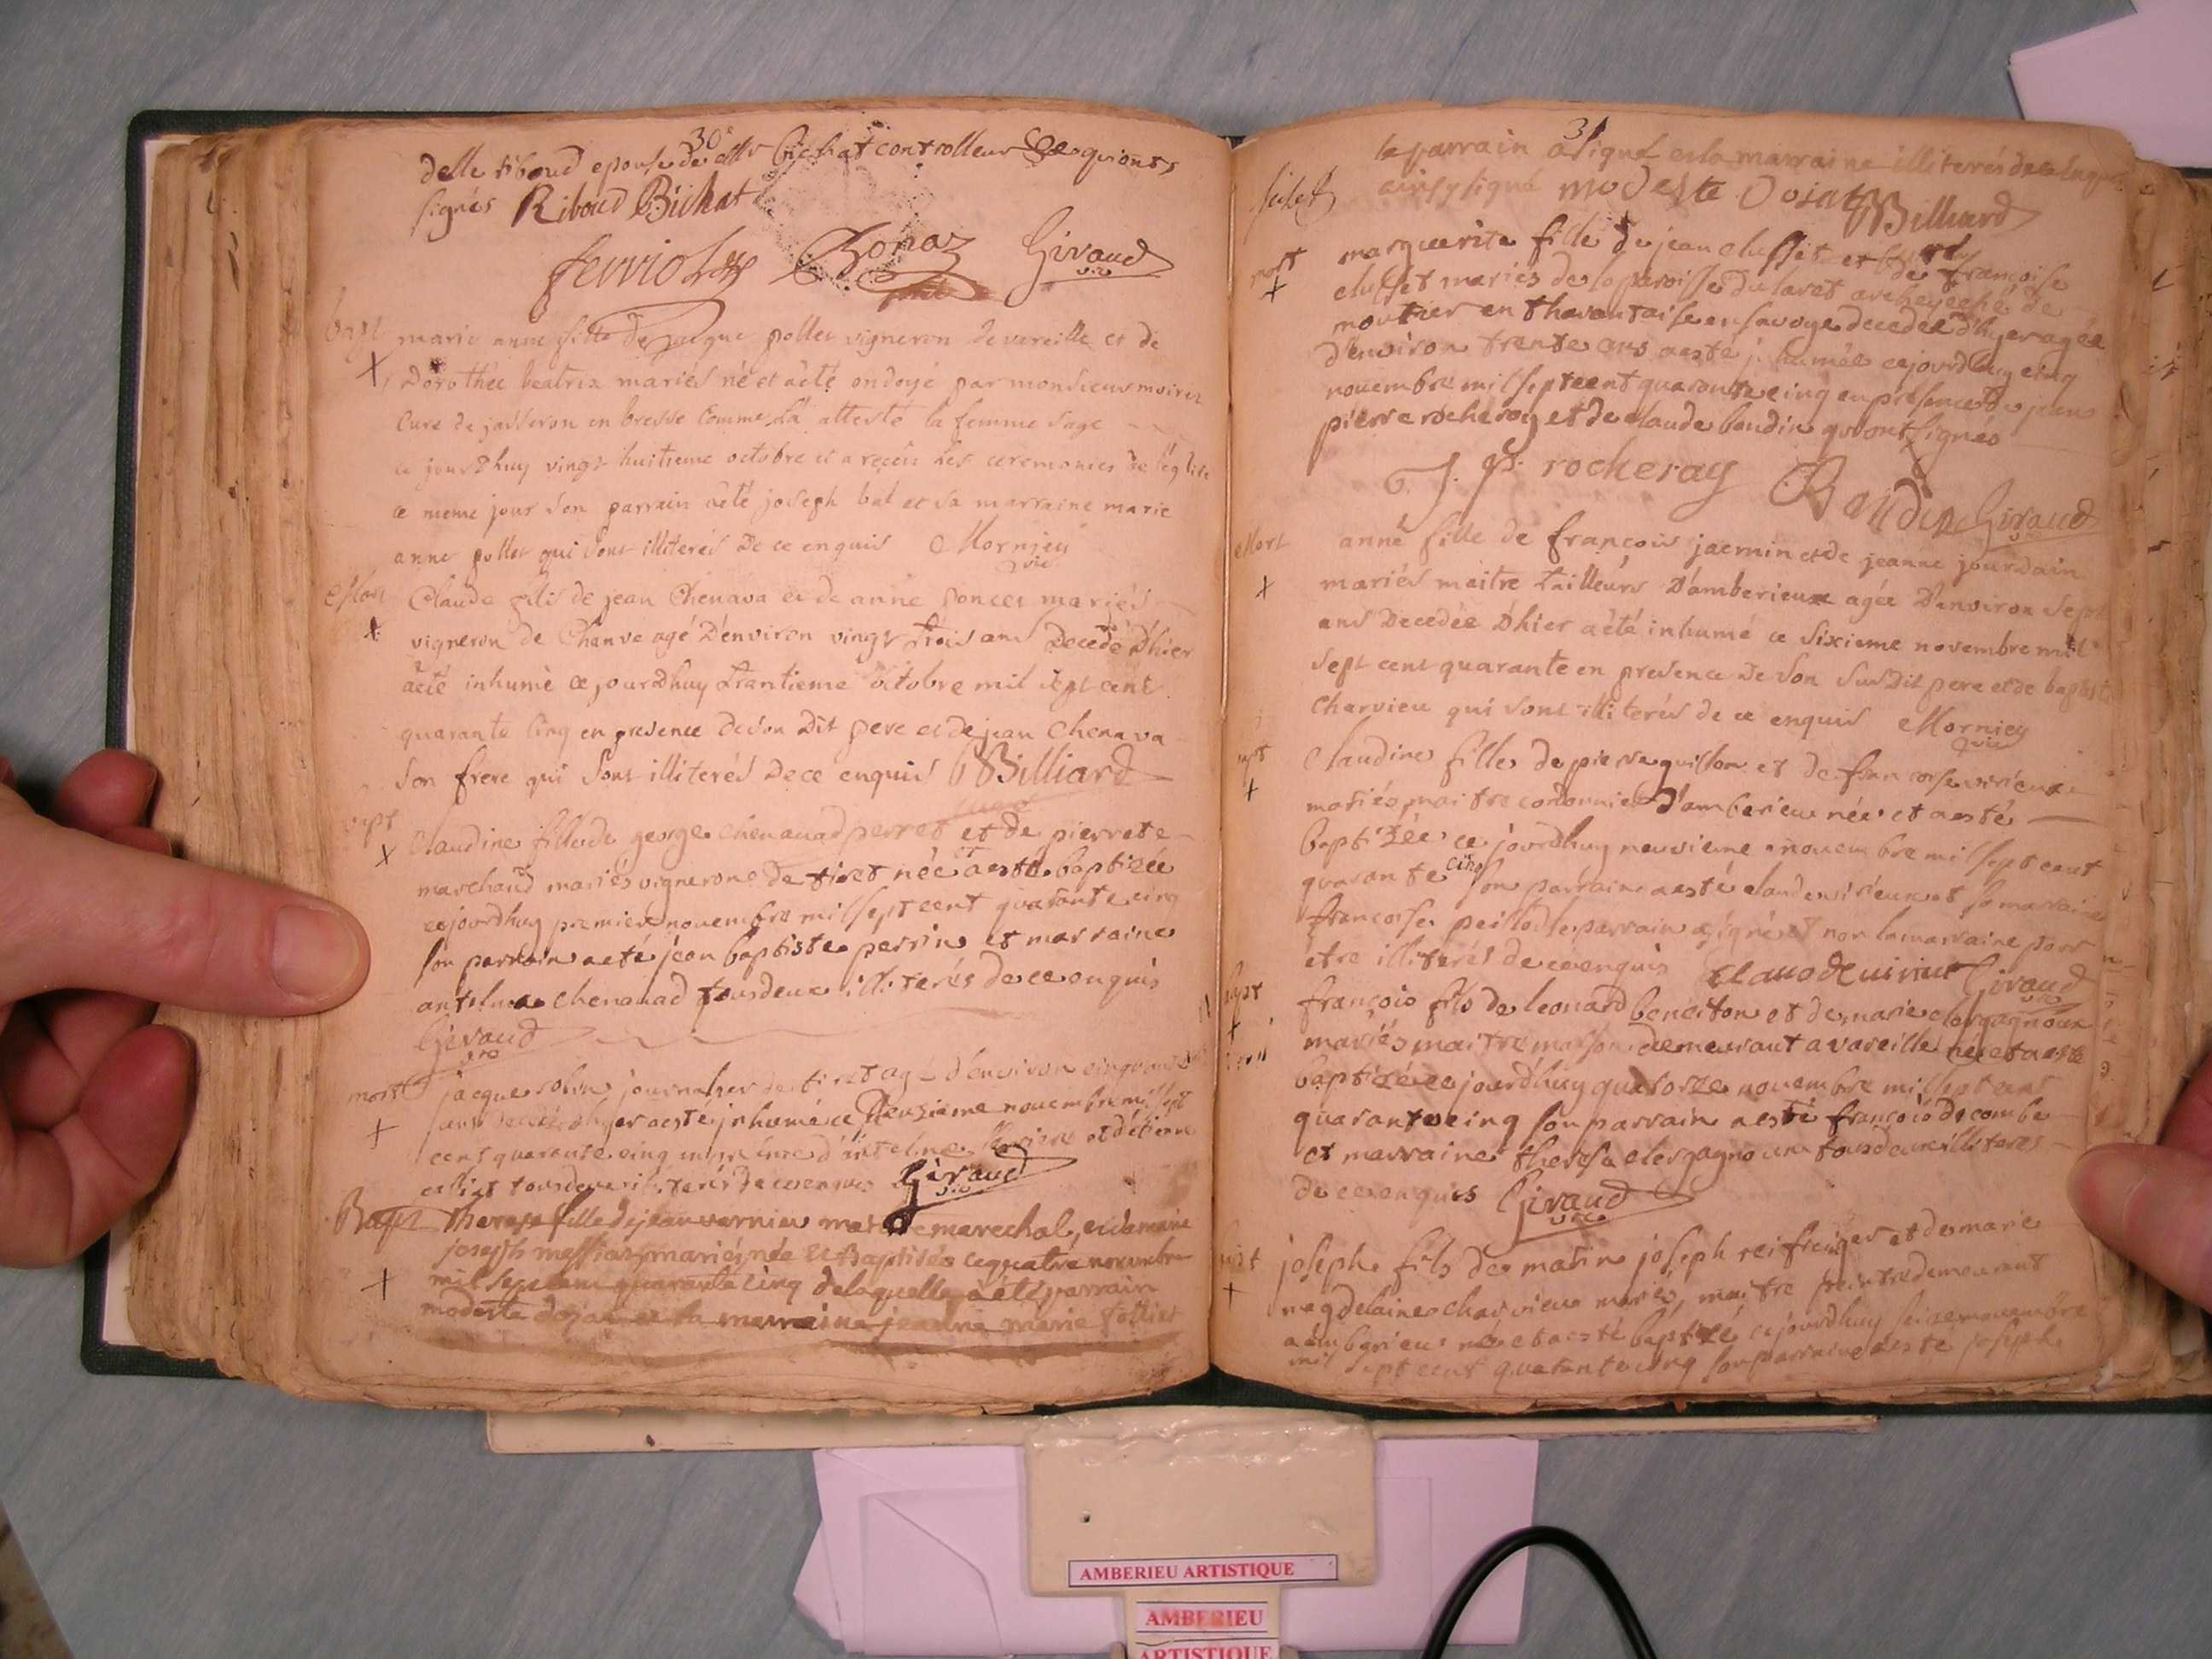 30
delle riboud epouse de bichat controlleur qui ont
signés Riboud Bichat
ferriol Bonaz Giraud
vic
bapt marie anne fille de jacque pollet vigneron de vareille et de
Dorothée beatrix mariés né et a été ondoyé par monsieur moiret
curé de jasseron en bresse comme l'a attesté la femme sage
ce jourdhuy vingt huitieme octobre et a reçeu les ceremonies de l'eglise
ce meme jour son parrain a été joseph bal et sa marraine marie
anne pollet qui sont illiterés de ce enquis Mornieu
vic
Mort Claude fils de jean Chenava et de anne ponces mariés
vigneron de Chanve agé d'environ vingt trois ans decedé d'hier
a été inhumé ce jourdhuy trantieme octobre mil sept cent
quarante cinq en presence de son dit pere et de jean Chenava
son frere qui sont illiterés de ce enquis Billiard
bapt Claudine fille de george chenavad perret et de pierrete
marchand mariés vigneron de tiret née a esté baptizée
cejourdhuy premier novembre mil sept cent quarante cinq
son parrain a eté jean baptiste perrin et marraine
antelme chenavad tous deux illiterés de ce enquis
Giraud
vic
mort jacque robin journalier de tiret agé d'environ cinquante
ans decedé d'hyer a esté inhumé ce deuzieme novembre mil sept
cent quarante cinq en presence d'antelme et d'etienne
tous deux illiterés de ce enquis Giraud
vic
Bapt therese fille de jean varnier maitre marechal, et de marie
joseph messiat mariés, née et Baptisée ce quatre novembre
mil sept cent quarante cinq de laquelle a été parrain
modeste dojat et la marraine jeanne marie tollier
31
le parrain a signé et la marraine illiterée de ce enquis
ainsy signé modeste Dojat Billiard
mort marguerite fille de jean clusset et de françoise
clusset mariés de la paroisse du laret archeveché de
moutier en tharantaise en savoye decedée d'hyer agée
d'environ trente ans a esté inhumée cejourdhuy cinq
novembre mil sept cent quarante cinq en presence de jean
pierre rocheray et de claude baudin qui ont signés
J. P. rocheray Baudin Giraud
Mort anne fille de françois jacmin et de jeanne jourdain
mariés maitre tailleurs d'amberieux agée d'environ sept
ans decedée d'hier a été inhumé ce sixieme novembre mil
sept cent quarante en presence de son susdit pere et de baptiste
Charvieu qui sont illiterés de ce enquis Mornieu
vic
bapt Claudine fille de pierre guillon et de francoise virieux
mariés, maitre cordonnier d'amberieu née et a esté
baptizée ce jourdhuy neuvieme novembre mil sept cent
quarante cinq son parrain a esté claude virieux et sa maraine
françoise peillod le parrain a signé et non la marraine pour
etre illiterés de ce enquis claude uirieux Giraud
vic
bapt françois fils de leonard beneiton et de marie clergagnoux
mariés maitre masson demeurant a vareille né et a esté
baptizé ce jourdhuy quatorze novembre mil sept cent
quarante cinq son parrain a esté françois decombe
et marraine therese clergagnoux tous deux illiteres
de ce enquis Giraud
vic
bapt joseph fils de matin joseph reifreiger et de marie
magdelaine charvieu mariés, maitre peintre demeurant
a amberieu né et a esté baptizé ce jourdhuy seize novembre
mil sept cent quarante cinq son parrain a esté joseph
AMBERIEU ARTISTIQUE
AMBERIEU
ARTISTIQUE